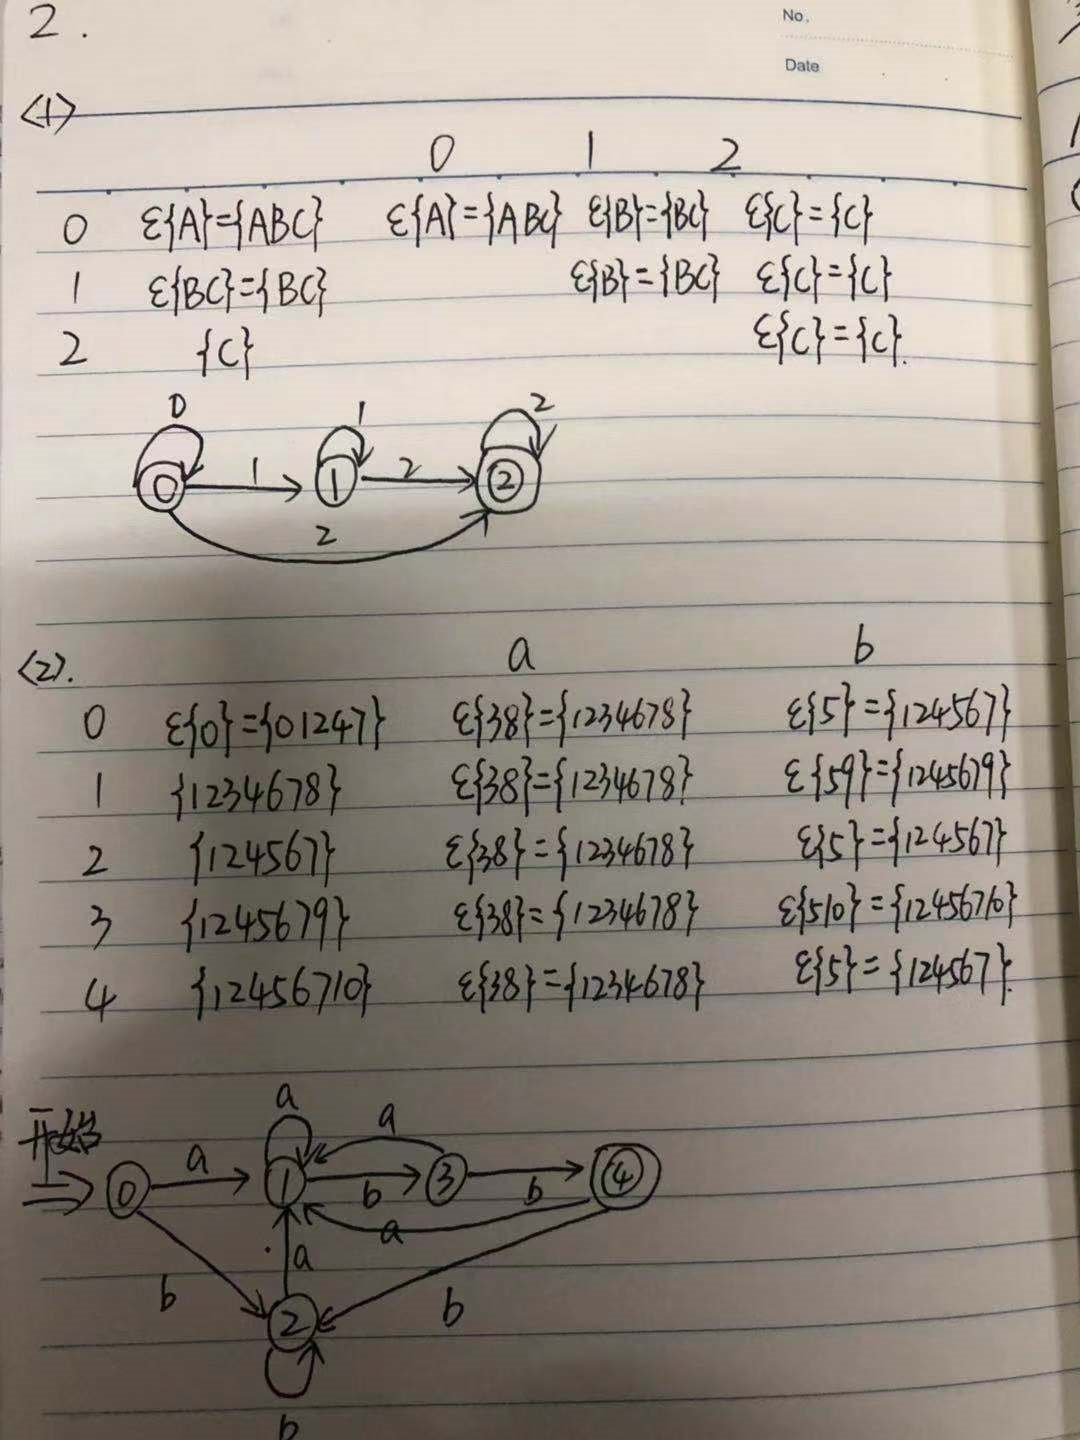 2.
No.
Date
<1>
0 1 2
0 ε{A}={ABC} ε{A}={ABC} ε{B}={BC} ε{C}={C}
1 ε{BC}={BC} ε{B}={BC} ε{C}={C}
2 {C} ε{C}={C}.
0 1 2
0 1 1 2 2
2
<2>. a b
0 ε{0}={01247} ε{38}={1234678} ε{5}={124567}
1 {1234678} ε{38}={1234678} ε{59}={1245679}
2 {124567} ε{38}={1234678} ε{5}={124567}
3 {1245679} ε{38}={1234678} ε{510}={12456710}
4 {12456710} ε{38}={1234678} ε{5}={124567}.
a a
开始 0 a 1 b 3 b 4
a
a
b 2 b
b